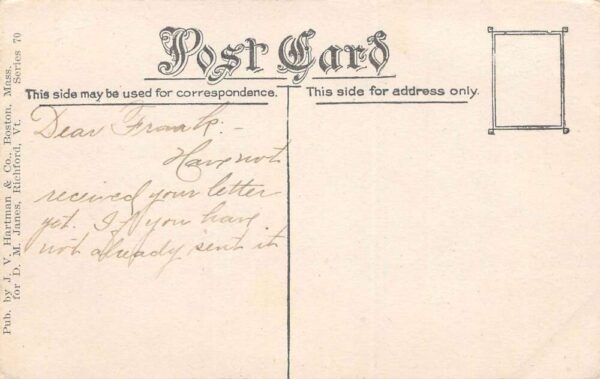 Post Card
This side may be used for correspondence.
This side for address only.
Dear Frank. –
Have not
received your letter
yet. If you have
not already sent it
Pub. by J. V. Hartman & Co., Boston, Mass.
for D. M. Janes, Richford, Vt. Series 70